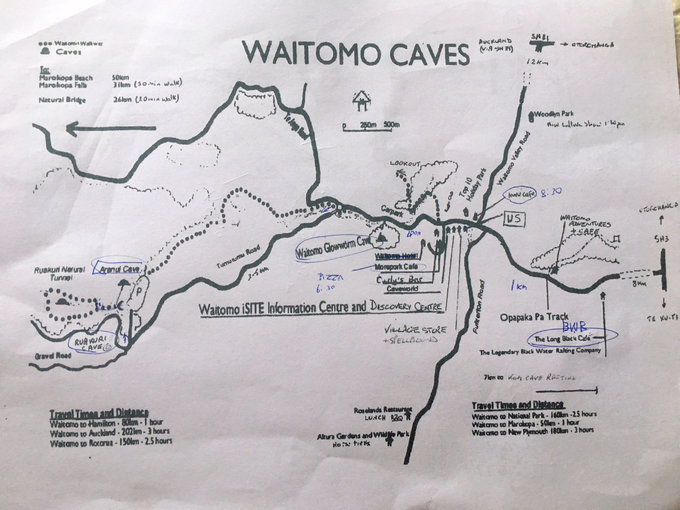 WAITOMO CAVES
Waitomo Walkway
Caves
To:
Marokopa Beach 50km
Marokopa Falls 31km (30min walk)
Natural Bridge 26km (20min walk)
AUCKLAND
SH31
OTOROHANGA
12km
0 250m 500m
Woodlyn Park
LOOKOUT
Te Anga Road
Carpark
Top 10 Holiday Park
Waitomo Valley Road
8.30
US
WAITOMO ADVENTURES
OTOROHANGA
SH3
8km
TE KUITI
Waitomo Glowworm Cave
Waitomo Hotel
Morepork Cafe
Curly's Bar
Caveworks
PIZZA
6.30
Tumutumu Road
3.5km
Aranui Cave
Ruakuri Natural Tunnel
RUAKURI CAVE
Gravel Road
Waitomo iSITE Information Centre and DISCOVERY CENTRE
1km
Opapaka Pa Track
BWB
The Long Black Café
The Legendary Black Water Rafting Company
VILLAGE STORE
+ SPELLBOUND
Fullerton Road
7km to KIWI CAVE RAFTING
Roselands Restaurant
LUNCH
Altura Gardens and Wildlife Park
Travel Times and Distance
Waitomo to Hamilton - 80km - 1 hour
Waitomo to Auckland - 202km - 3 hours
Waitomo to Rotorua - 150km - 2.5 hours
Travel Times and Distance
Waitomo to National Park - 160km - 2.5 hours
Waitomo to Marokopa - 50km - 1 hour
Waitomo to New Plymouth 180km - 3 hours